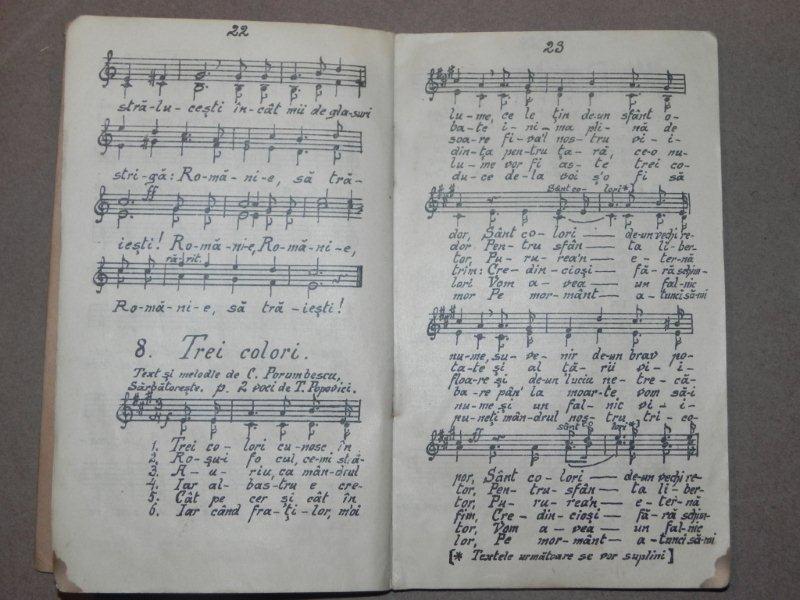 22
stră-lu-cești în-cât mii de glasuri
stri-gă: Ro-mâ-ni-e, să tră-
ff
iești! Ro-mâ-ni-e, Ro-mâ-ni-e,
ră-rit.
Ro-mâ-ni-e, să tră-iești!
8. Trei colori.
Text și melodie de C. Porumbescu,
Sărbătorește. p. 2 voci de T. Popovici.
1. Trei co-lori cu-nosc în
2. Ro-șu-i fo cul, ce-mi stră-
3. A-u-riu, ca mân-drul
4. Iar al-bas-tru e cre-
5. Cât pe cer și cât în
6. Iar când fra-ți-lor, m'oi
23
lu-me, ce le țin de-un sfânt o-
ba-te i-ni-ma pli-nă de
soa-re fi-va'l nos-tru vi-i-
din-ța pen-tru ța-ră, ce-o nu-
lu-me vor fi as-te trei co-
du-ce de-la voi ș'o fi să
Sânt co-lori*]
dor, Sânt co-lori de-un vechi re-
dor Pen-tru sfân-ta li-ber-
tor, Pu-ru-rea'n e-ter-nă
trim: Cre-din-cioși fă-ră schim-
lori Vom a-vea un fal-nic
mor Pe mor-mânt a-tunci să-mi
nu-me, su-ve-nir de-un brav po-
ta-te și al ță-rii vi-i-
floa-re și de-un luciu ne-tre-că-
ba-re pân' la moar-te vom să-i
nu-me și un fal-nic vi-i-
nu-neți mân-drul nos-tru tri-co-
ff
sânt co-lori
por, Sânt co-lori de-un vechi re-
tor, Pen-tru-sfân-ta li-ber-
tor, Pu-ru-rea'n e-ter-nă
fim, Cre-din-cioși fă-ră schim-
tor, Vom a-vea un fal-nic
lor, Pe mor-mânt a-tunci să-mi
[* Textele următoare se vor suplini]